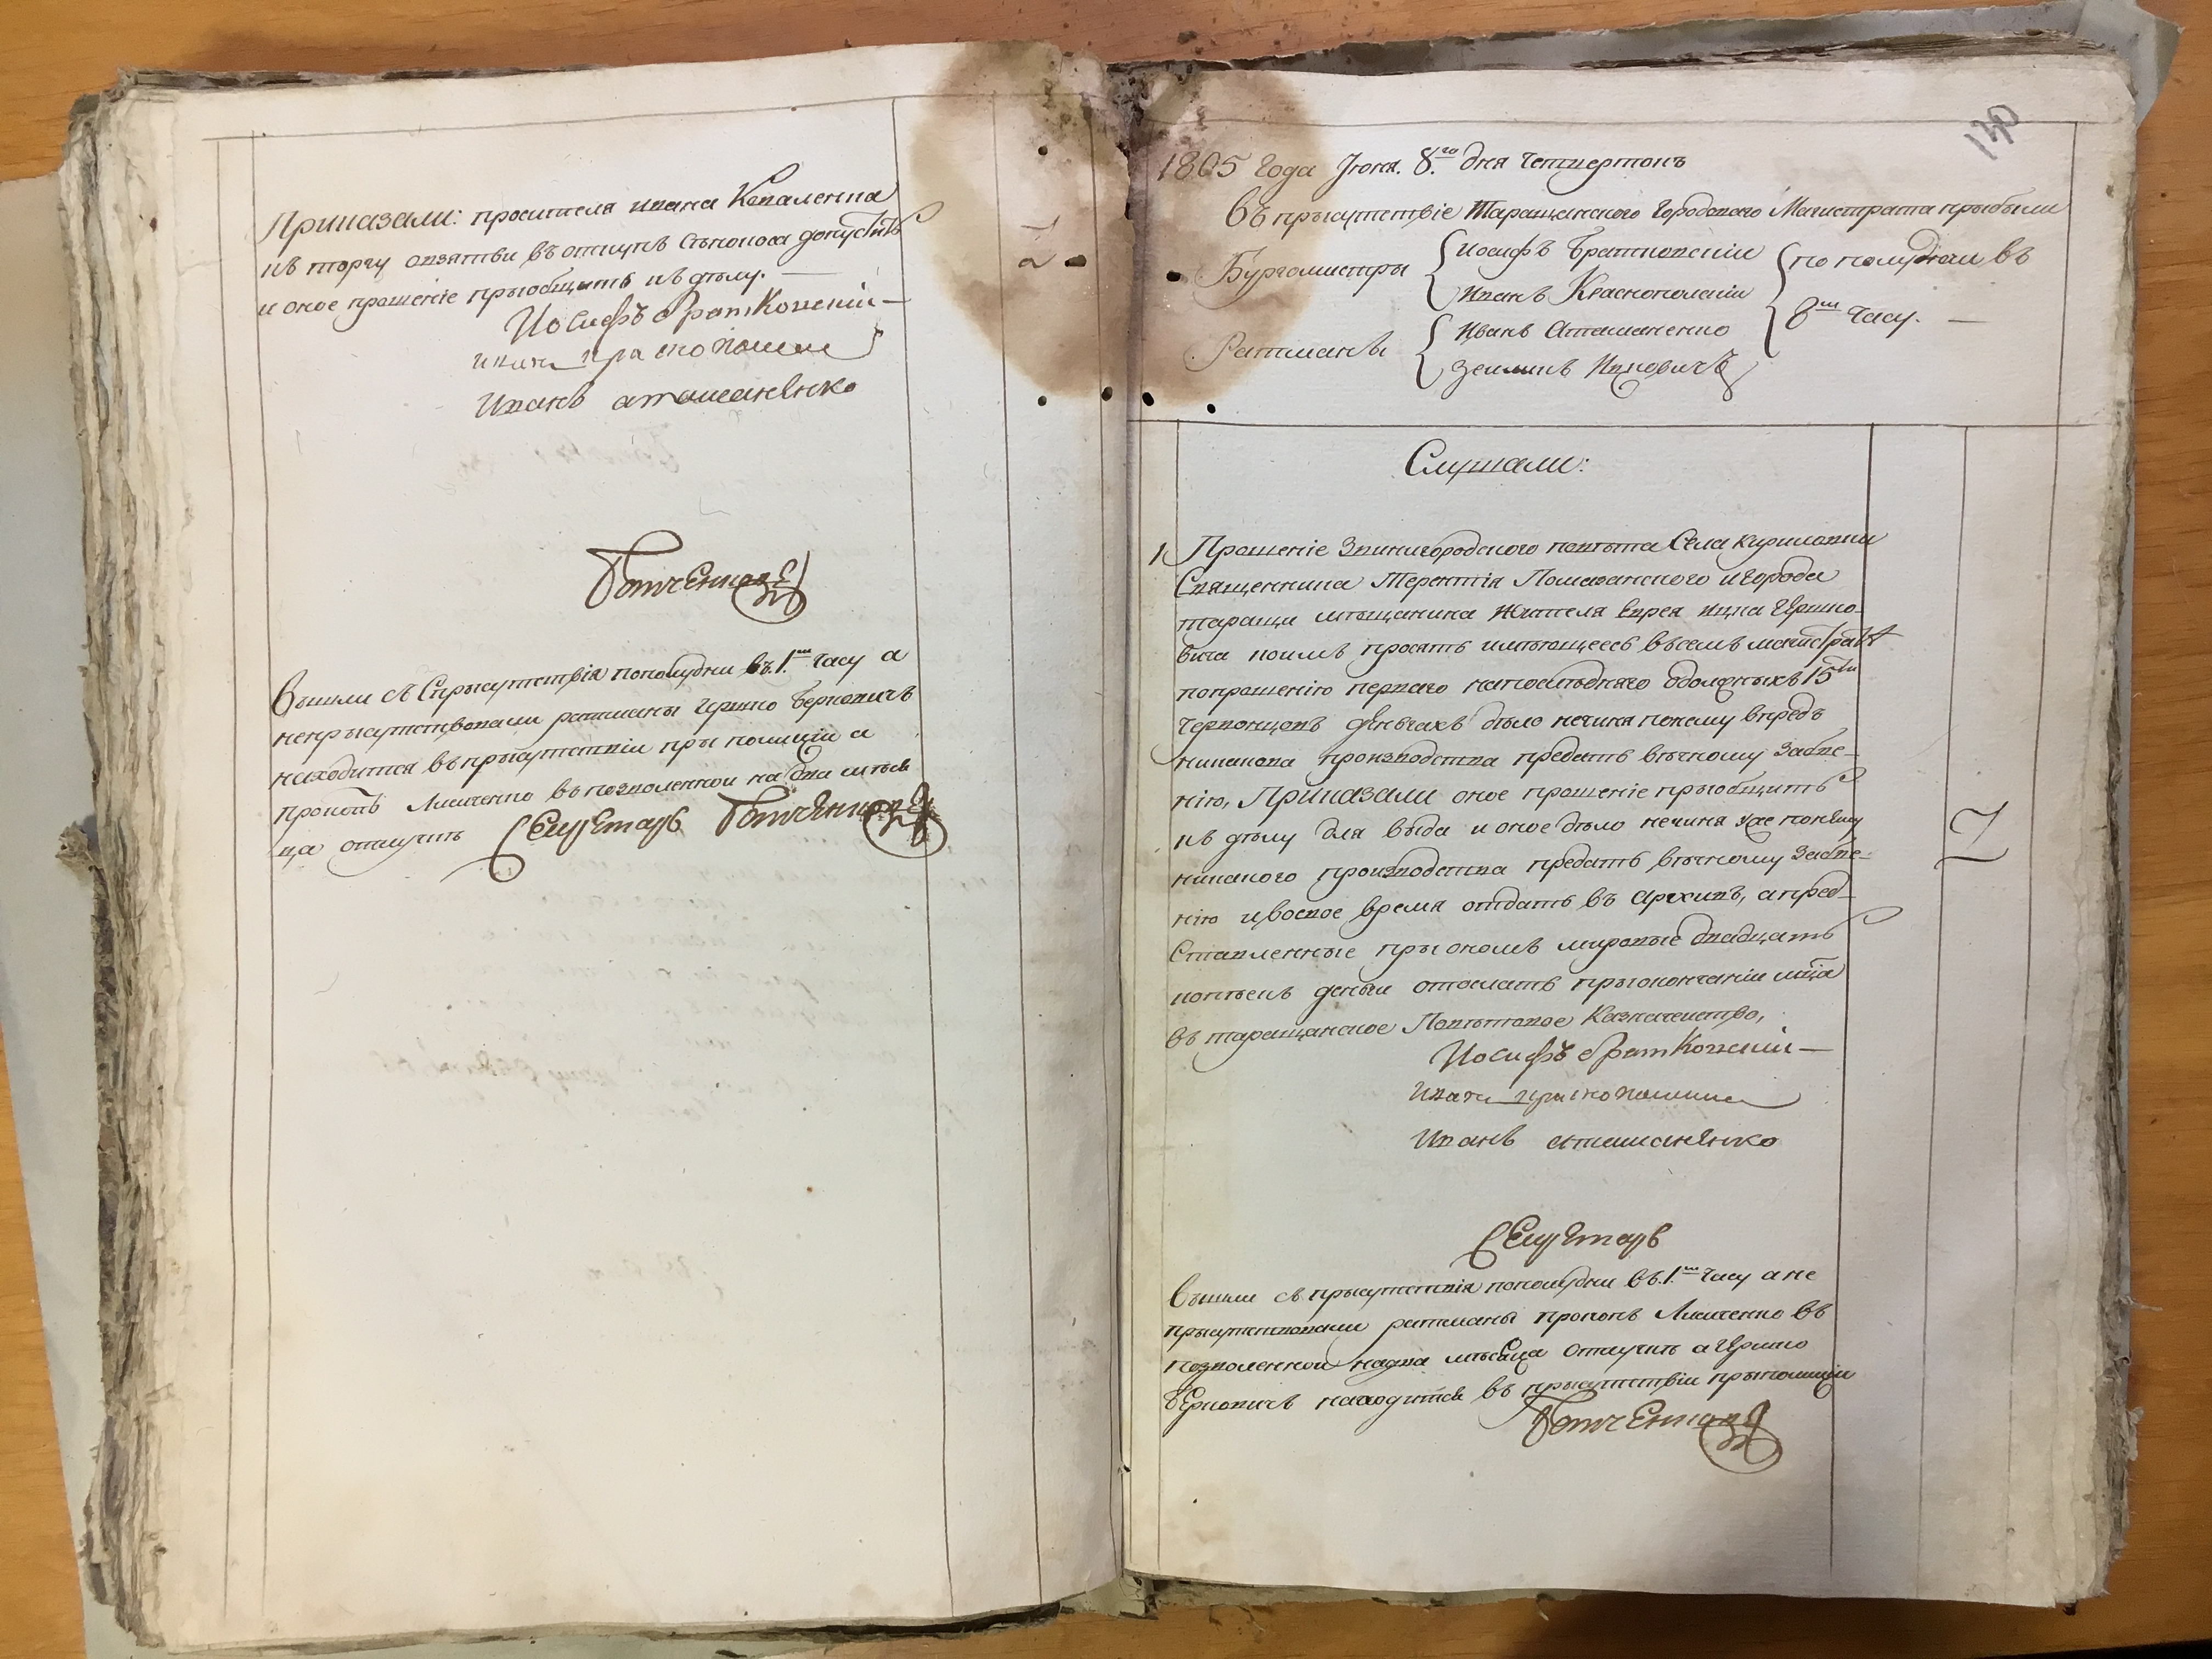 Приказали: просителя ивана Коваленка
къ торгу овзятьи въ откупъ сѣнокоса допустить
и оное прошеніе пріобщить къ дѣлу. —
Иосифъ братковскій —
Иванъ краснополскій
Иванъ атаманенко
вышли съ Сприсутствія пополудни въ 1.м часу а
неприсутствовали ратманы Гершко Берковичъ
находится въ присутствіи при полиціи а
Прокопъ Лисиченко в позволенной на два мѣсе
ца отлучкѣ Секретарь
27
140
1805 Года Іюня. 8.го дня четвертокъ
въ присутствіе Таращанского Городового Магистрата прибыли
Бургомистры Иосифъ Братковскій по полудни въ
Иванъ Краснополскій 8м часу. —
Ратманы Иванъ Атаманенко
Слушали:
1. Прошеніе Звинигородского повѣта Села Кириловки
Священника Терентія Помазанского и города
таращи мѣщанина жителя еврея ицка Гершко-
вича коимъ просятъ имѣющееся въ семъ магистратѣ
попрошенію перваго на послѣдняго одолжныхъ 15ти
червонцовъ деньгахъ дѣло нечиня по нему впредь
никакова произвođства предать вѣчному забве-
нію, Приказали оное прошеніе пріобщить
къ дѣлу для вида и оное дѣло нечиня уже понему
никакого производства предать вѣчному забве-
нію и восвое время отдать въ архивъ, а пред-
ставленные при ономъ мировые двадцать
копѣекъ деньги отослать приокончаніи мца
въ таращанское Повѣтовое Казначейство,
Иосифъ братковскій —
Иванъ краснополскій
Иванъ атаманенко
Секретарь
вышли съ присутствія пополудни въ 1.м часу а не
присутствовали ратманы прокопъ Лисиченко въ
позволенной надва мѣсяца отлучкѣ а Гершко
Берковичъ находится въ присутствіи приполиціи
17